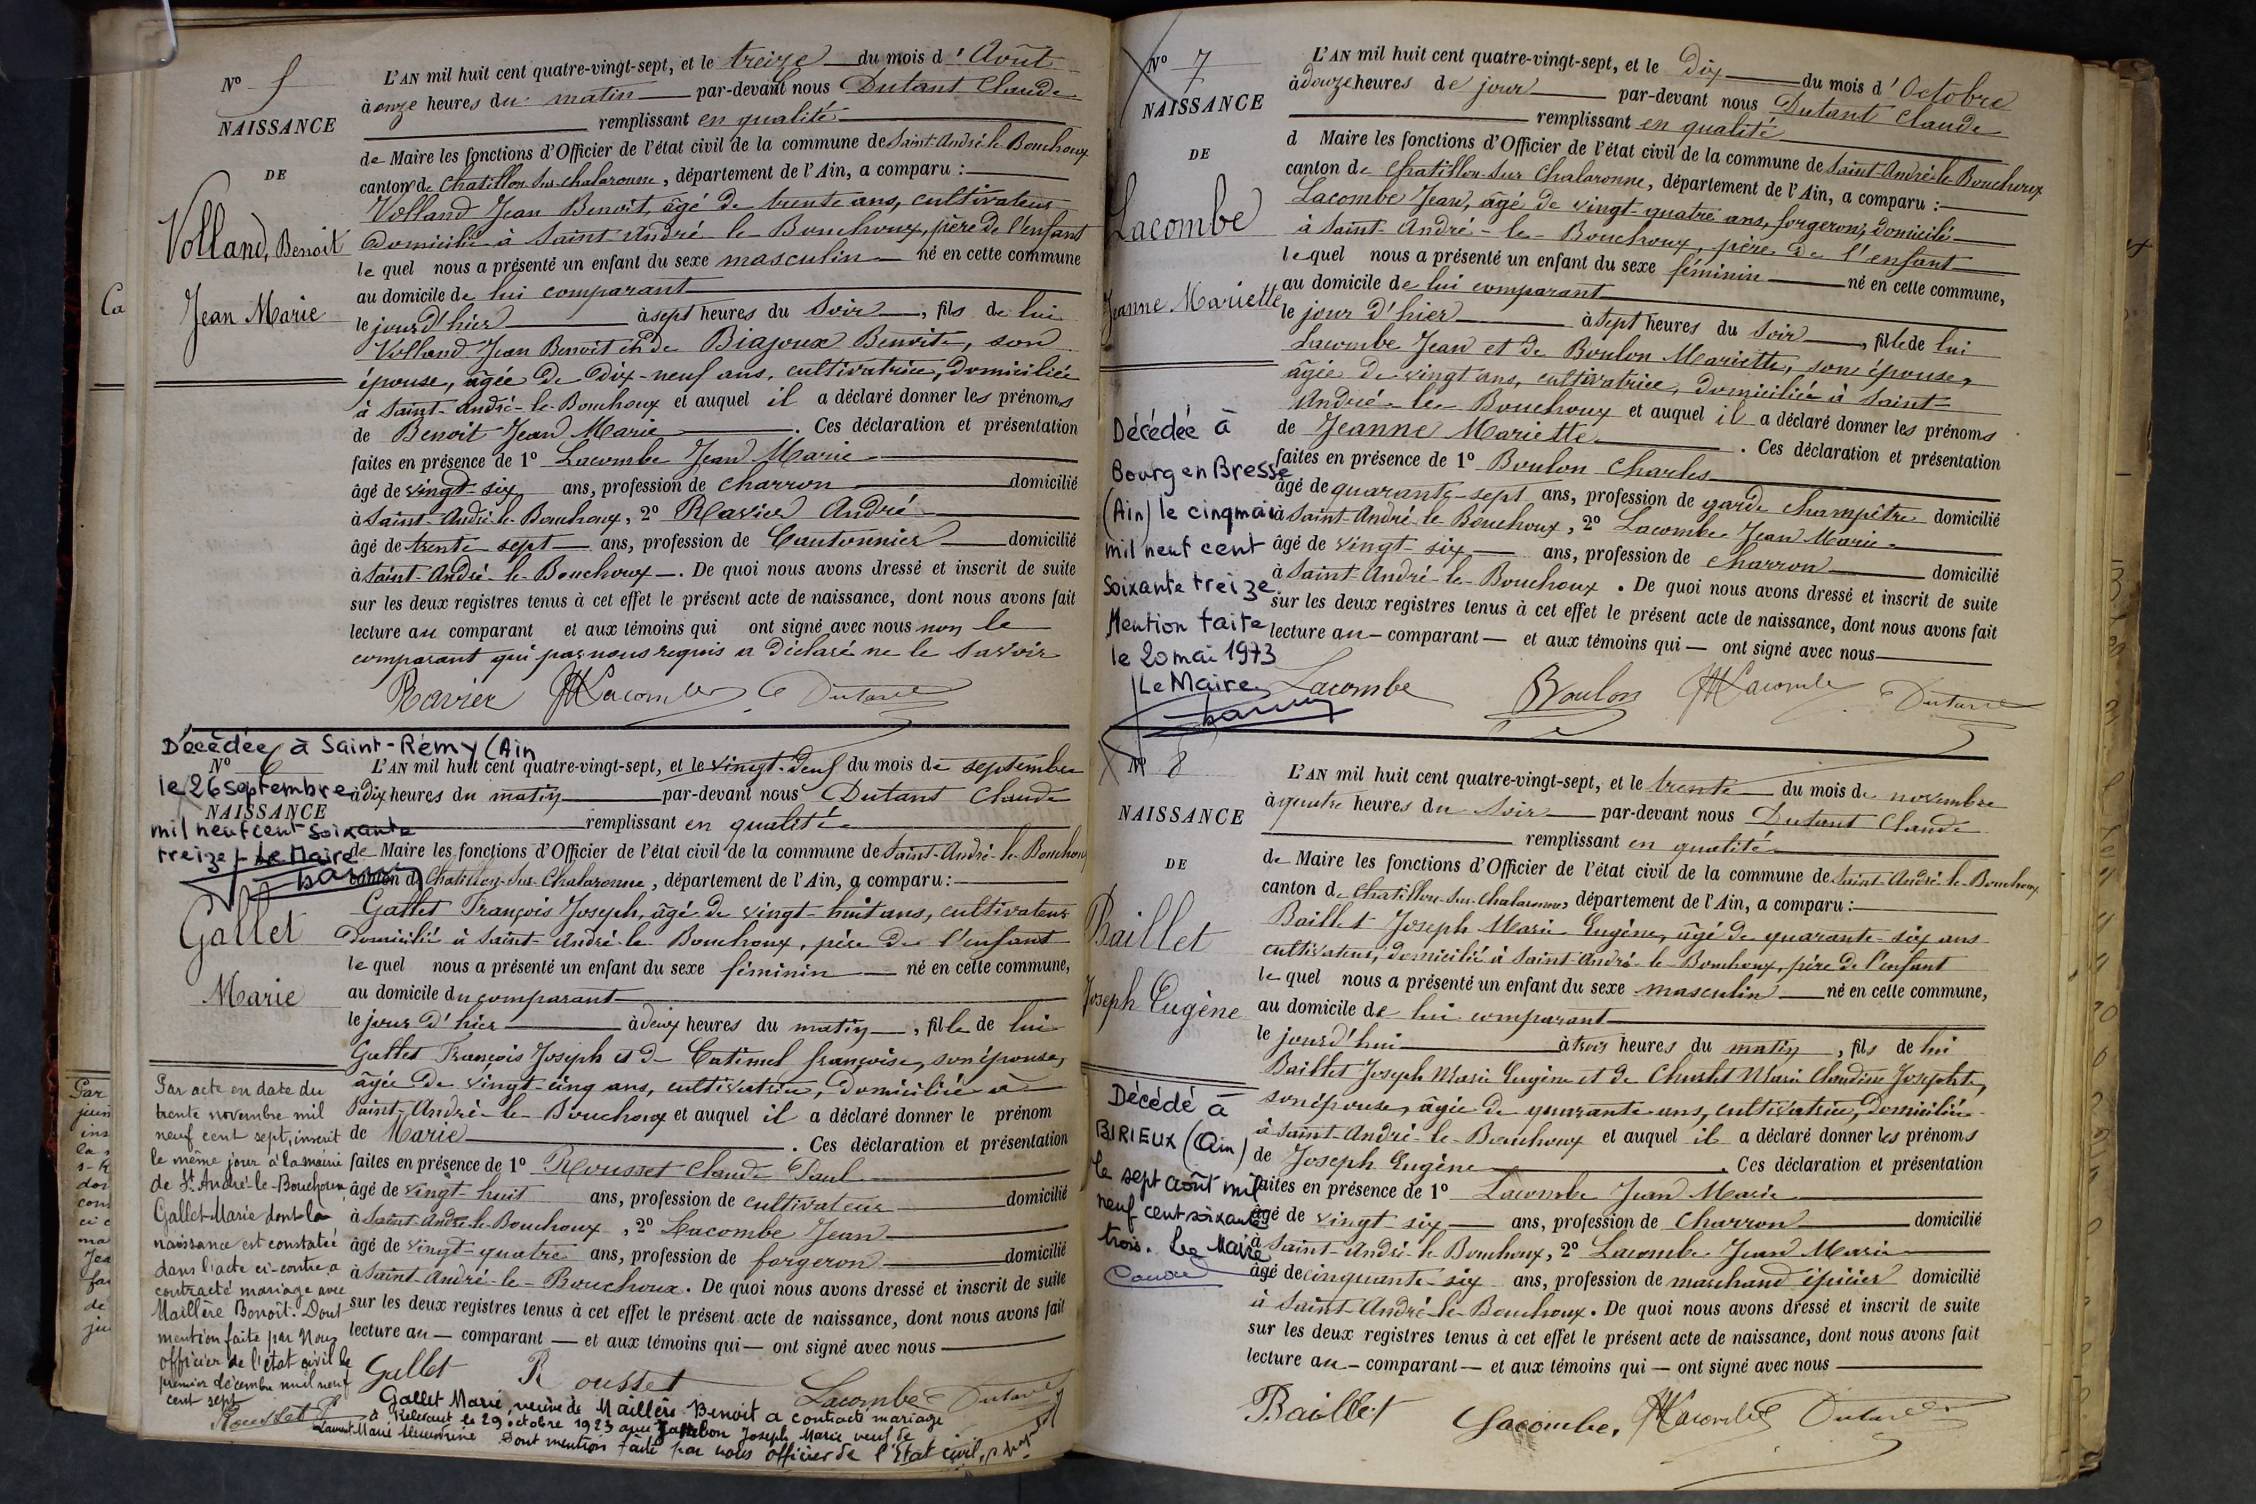 Nº 5
NAISSANCE
DE
Volland, Benoit
Jean Marie
L'AN mil huit cent quatre-vingt-sept, et le treize du mois d'Août
à onze heures du matin par-devant nous Dutant Claude
remplissant en qualité
de Maire les fonctions d'Officier de l'état civil de la commune de Saint-André-le-Bouchoux
canton de Chatillon-sur-Chalaronne, département de l'Ain, a comparu :
Volland Jean Benoit, âgé de trente ans, cultivateur
domicilié à Saint-André le Bouchoux, père de l'enfant
lequel nous a présenté un enfant du sexe masculin né en cette commune
au domicile de lui comparant
le jour d'hier à sept heures du soir, fils de lui
Volland Jean Benoit et de Biajoux Benoite, son
épouse, âgée de dix-neuf ans, cultivatrice, domiciliée
à Saint-André-le-Bouchoux et auquel il a déclaré donner les prénoms
de Benoit Jean Marie. Ces déclaration et présentation
faites en présence de 1º Lacombe Jean Marie
âgé de vingt-six ans, profession de charron domicilié
à Saint-André-le-Bouchoux, 2º Ravier André
âgé de trente sept ans, profession de Cantonnier domicilié
à Saint-André-le-Bouchoux. De quoi nous avons dressé et inscrit de suite
sur les deux registres tenus à cet effet le présent acte de naissance, dont nous avons fait
lecture au comparant et aux témoins qui ont signé avec nous non le
comparant qui par nous requis a déclaré ne le savoir
Ravier JM Lacombe C Dutant
Décédée à Saint-Rémy (Ain
le 26 septembre
mil neuf cent soixante
treize Le Maire
Nº 6
NAISSANCE
Gallet
Marie
L'AN mil huit cent quatre-vingt-sept, et le vingt-deux du mois de septembre
à dix heures du matin par-devant nous Dutant Claude
remplissant en qualité
de Maire les fonctions d'Officier de l'état civil de la commune de Saint-André-le-Bouchoux
canton de Chatillon-sur-Chalaronne, département de l'Ain, a comparu :
Gallet François Joseph, âgé de vingt-huit ans, cultivateur
domicilié à Saint-André-le-Bouchoux, père de l'enfant
lequel nous a présenté un enfant du sexe féminin né en cette commune,
au domicile du comparant
le jour d'hier à deux heures du matin, fille de lui
Gallet François Joseph et de Catimel françoise, son épouse,
âgée de vingt-cinq ans, cultivatrice, domiciliée à
Saint-André-le-Bouchoux et auquel il a déclaré donner le prénom
de Marie. Ces déclaration et présentation
faites en présence de 1º Rousset Claude Paul
âgé de vingt-huit ans, profession de cultivateur domicilié
à Saint-André-le-Bouchoux, 2º Lacombe Jean
âgé de vingt-quatre ans, profession de forgeron domicilié
à Saint-André-le-Bouchoux. De quoi nous avons dressé et inscrit de suite
sur les deux registres tenus à cet effet le présent acte de naissance, dont nous avons fait
lecture au comparant et aux témoins qui ont signé avec nous
Gallet Rousset Lacombe Dutant
Par acte en date du
trente novembre mil
neuf cent sept, inscrit
le même jour à la mairie
de St André-le-Bouchoux
Gallet Marie dont la
naissance est constatée
dans l'acte ci-contre a
contracté mariage avec
Maillère Benoît. Dont
mention faite par Nous
officier de l'état civil le
premier décembre mil neuf
cent sept
Rousset P
Gallet Marie, veuve de Maillère Benoit a contracté mariage
à le 29 octobre 1923 avec Joseph Marie veuf de
Dont mention faite par nous officier de l'Etat civil
Nº 7
NAISSANCE
DE
Lacombe
Jeanne Mariette
L'AN mil huit cent quatre-vingt-sept, et le dix du mois d'Octobre
à douze heures de jour par-devant nous Dutant Claude
remplissant en qualité
d Maire les fonctions d'Officier de l'état civil de la commune de Saint-André-le-Bouchoux
canton de Chatillon-sur-Chalaronne, département de l'Ain, a comparu :
Lacombe Jean, âgé de vingt-quatre ans, forgeron, domicilié
à Saint-André-le-Bouchoux, père de l'enfant
lequel nous a présenté un enfant du sexe féminin né en cette commune,
au domicile de lui comparant
le jour d'hier à sept heures du soir, fille de lui
Lacombe Jean et de Boulon Mariette, son épouse,
âgée de vingt ans, cultivatrice, domiciliée à Saint-
André-le-Bouchoux et auquel il a déclaré donner les prénoms
de Jeanne Mariette. Ces déclaration et présentation
faites en présence de 1º Boulon Charles
âgé de quarante-sept ans, profession de garde champêtre domicilié
à Saint-André-le-Bouchoux, 2º Lacombe Jean Marie
âgé de vingt-six ans, profession de charron domicilié
à Saint-André-le-Bouchoux. De quoi nous avons dressé et inscrit de suite
sur les deux registres tenus à cet effet le présent acte de naissance, dont nous avons fait
lecture au comparant et aux témoins qui ont signé avec nous
Lacombe Boulon JM Lacombe C Dutant
Décédée à
Bourg en Bresse
(Ain) le cinq mai
mil neuf cent
soixante treize
Mention faite
le 20 mai 1973
Le Maire
Nº 8
NAISSANCE
DE
Baillet
Joseph Eugène
L'AN mil huit cent quatre-vingt-sept, et le trente du mois de novembre
à quatre heures du soir par-devant nous Dutant Claude
remplissant en qualité
de Maire les fonctions d'Officier de l'état civil de la commune de Saint-André-le-Bouchoux
canton de Chatillon-sur-Chalaronne, département de l'Ain, a comparu :
Baillet Joseph Marie Eugène, âgé de quarante-six ans
cultivateur, domicilié à Saint-André-le-Bouchoux, père de l'enfant
lequel nous a présenté un enfant du sexe masculin né en cette commune,
au domicile de lui comparant
le jour d'hui à trois heures du matin, fils de lui
Baillet Joseph Marie Eugène et de Charlet Marie Claudine Josephte,
son épouse, âgée de quarante ans, cultivatrice, domiciliée
à Saint-André-le-Bouchoux et auquel il a déclaré donner les prénoms
de Joseph Eugène. Ces déclaration et présentation
faites en présence de 1º Lacombe Jean Marie
âgé de vingt-six ans, profession de charron domicilié
à Saint-André-le-Bouchoux, 2º Lacombe Jean Marie
âgé de cinquante-six ans, profession de marchand épicier domicilié
à Saint-André-le-Bouchoux. De quoi nous avons dressé et inscrit de suite
sur les deux registres tenus à cet effet le présent acte de naissance, dont nous avons fait
lecture au comparant et aux témoins qui ont signé avec nous
Baillet Lacombe, JM Lacombe Dutant
Décédé à
BIRIEUX (Ain)
le sept août mil
neuf cent soixante
trois. Le Maire